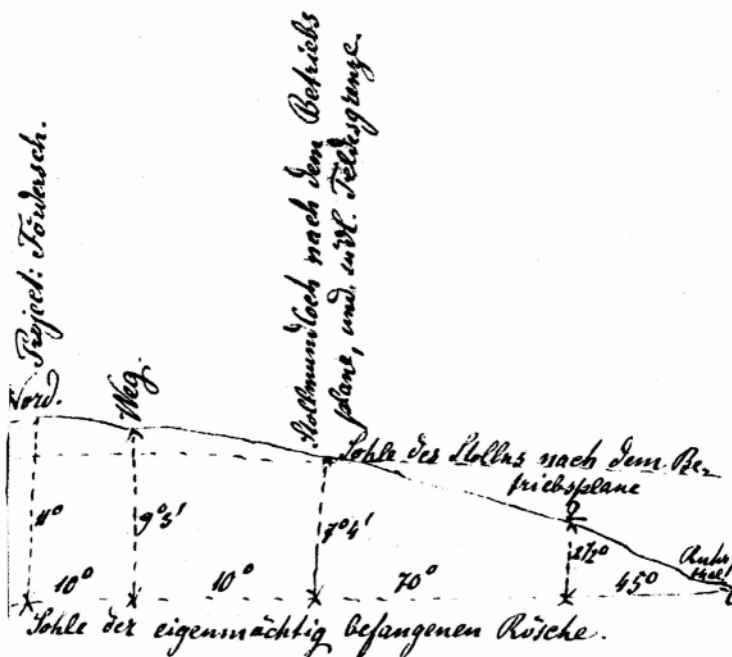 Project: Fördersch.
Nord.
Weg.
Stollmundloch nach dem Betriebs
plane, und südl. Feldesgrenze.
Sohle des Stollns nach dem Be-
triebsplane
11°
9°3'
7°4'
2½°
10°
10°
70°
45°
Ruhr
thal
Sohle der eigenmächtig befangenen Rösche.